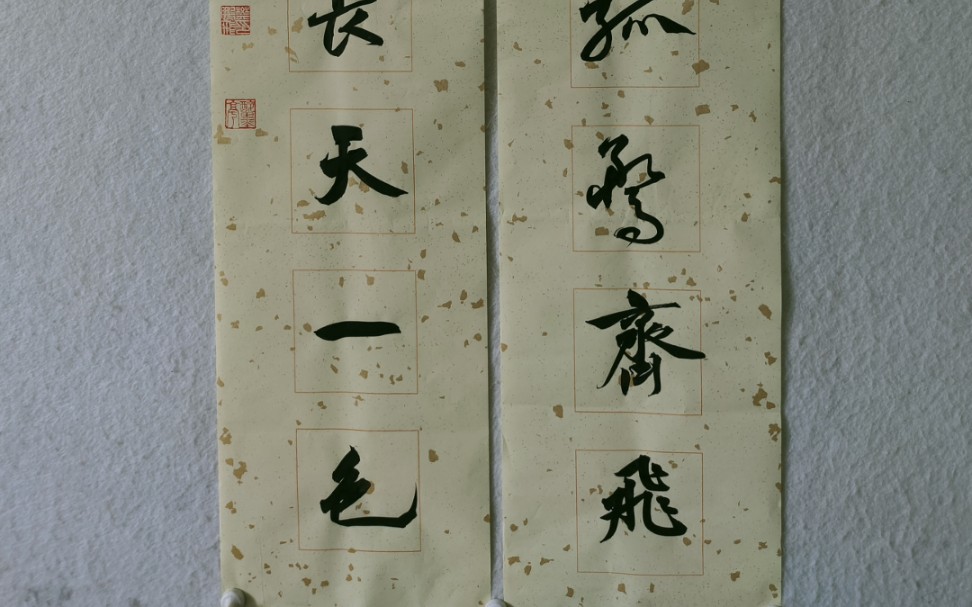 孤鶩齊飛
長天一色